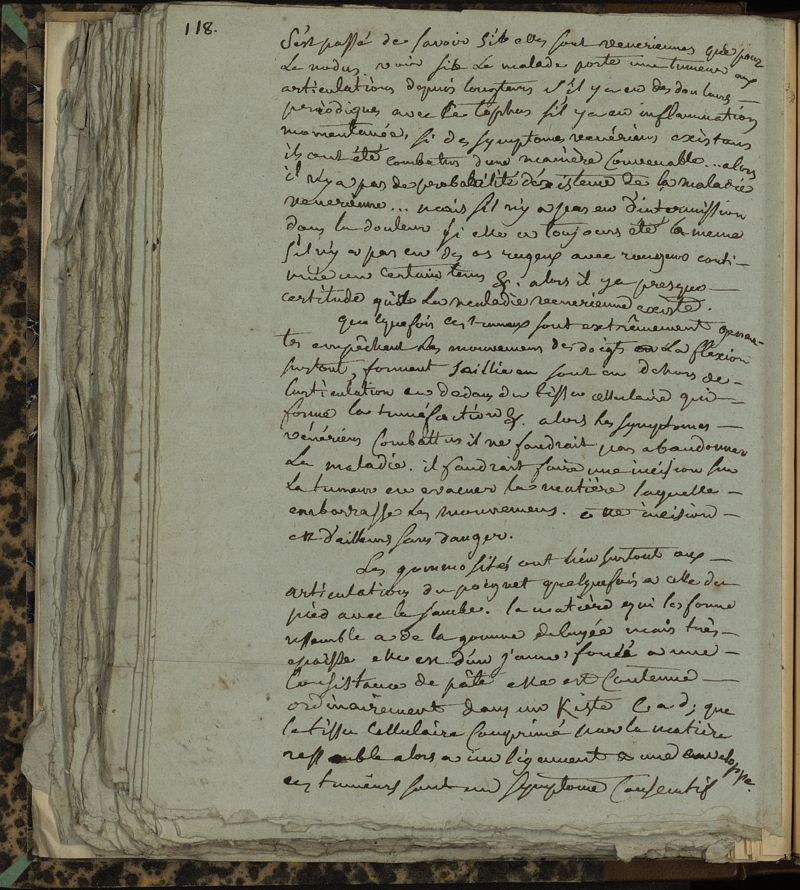 118.
s'est passé de savoir si elles sont veneriennes que pour
le nodus, voir si le malade porte une tumeur aux
articulations depuis longtems s'il y a eu des douleurs
periodiques avec le tophus s'il y a eu inflammation
momentanée, si des symptomes vénériens existans
ils ont été combattus d'une manière convenable... alors
il n'y a pas de probabilité d'existence de la maladie
venerienne... mais s'il n'y a pas eu d'intermission
dans la douleur si elle a toujours été la meme
s'il n'y a pas eu des os rugeux avec rougeur conti-
nuée un certain tems &. alors il y a presque
certitude que la maladie venerienne existe.
quelquefois ces tumeurs sont extrêmement
tes empêchent les mouvemens des doigts la flexion
surtout, forment saillie en sont en dehors de
l'articulation en dedans du tissu cellulaire qui
forme la tuméfaction &. alors les symptomes
vénériens combattus il ne faudrait pas abandonner
la maladie. il faudrait faire une incision sur
la tumeur en evacuer la matière laquelle
embarrasse les mouvemens. cette incision
est d'ailleurs sans danger.
Les gommosités ont lieu surtout aux
articulations du poignet quelquefois a celle du
pied avec la jambe. la matière qui les forme
ressemble a de la gomme delayée mais très
epaisse elle est d'un jaune foncé a une
consistance de pâte elle est contenue
ordinairement dans un Kiste c. a d; que
le tissu cellulaire comprimé par la matière
ressemble alors a un ligament a une enveloppe.
ces tumeurs sont un symptome consecutif